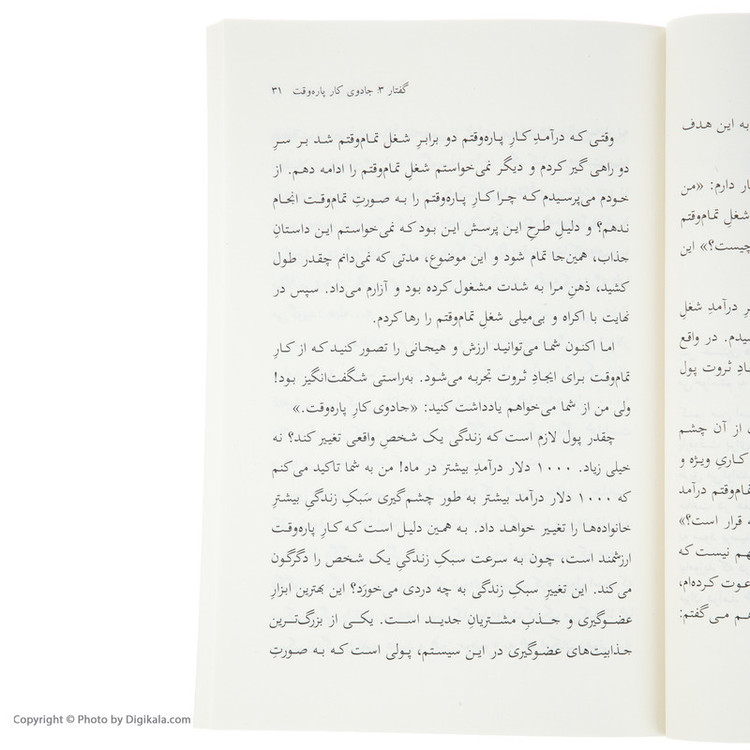 گفتار ۳: جادوی کار پاره‌وقت ۳۱
وقتی که درآمدِ کارِ پاره‌وقتم دو برابرِ شغل تمام‌وقتم شد بر سرِ
دو راهی گیر کردم و دیگر نمی‌خواستم شغلِ تمام‌وقتم را ادامه دهم. از
خودم می‌پرسیدم که چرا کارِ پاره‌وقتم را به صورتِ تمام‌وقت انجام
ندهم؟ و دلیلِ طرحِ این پرسش این بود که نمی‌خواستم این داستانِ
جذاب، همین‌جا تمام شود و این موضوع، مدتی که نمی‌دانم چقدر طول
کشید، ذهنِ مرا به شدت مشغول کرده بود و آزارم می‌داد. سپس در
نهایت با اکراه و بی‌میلی شغلِ تمام‌وقتم را رها کردم.
اما اکنون شما می‌توانید ارزش و هیجانی را تصور کنید که از کارِ
تمام‌وقت برای ایجادِ ثروت تجربه می‌شود. به‌راستی شگفت‌انگیز بود!
ولی من از شما می‌خواهم یادداشت کنید: «جادوی کارِ پاره‌وقت.»
چقدر پول لازم است که زندگی یک شخصِ واقعی تغییر کند؟ نه
خیلی زیاد. ۱۰۰۰ دلار درآمدِ بیشتر در ماه! من به شما تاکید می‌کنم
که ۱۰۰۰ دلار درآمد بیشتر به طور چشم‌گیری سَبکِ زندگیِ بیشترِ
خانواده‌ها را تغییر خواهد داد. به همین دلیل است که کارِ پاره‌وقت
ارزشمند است، چون به سرعت سبکِ زندگیِ یک شخص را دگرگون
می‌کند. این تغییرِ سبکِ زندگی به چه دردی می‌خورَد؟ این بهترین ابزارِ
عضوگیری و جذبِ مشتریانِ جدید است. یکی از بزرگ‌ترین
جذابیت‌های عضوگیری در این سیستم، پولی است که به صورتِ
به این هدف
دارم: «من
شغلِ تمام‌وقتم
چیست؟» این
درآمدِ شغلِ
در واقع
ثروت پول
از آن چشم
کاریِ ویژه و
درآمد
قرار است؟»
نیست که
کرده‌ام،
می‌گفتم:
Copyright © Photo by Digikala.com